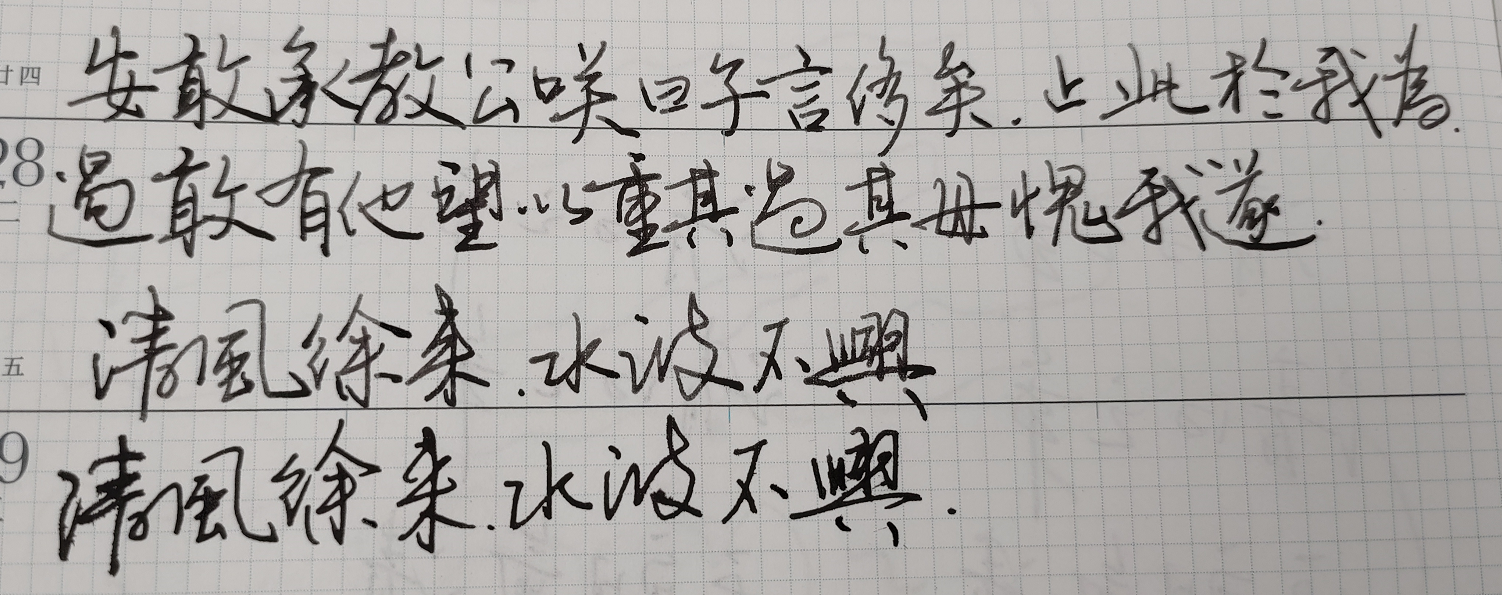 廿四
安敢承教公咲曰子言侈矣.止此於我為.
28
過敢有他望以重其過其毋愧我遂.
二
五
清風徐来.水波不興
9
清風徐来.水波不興.